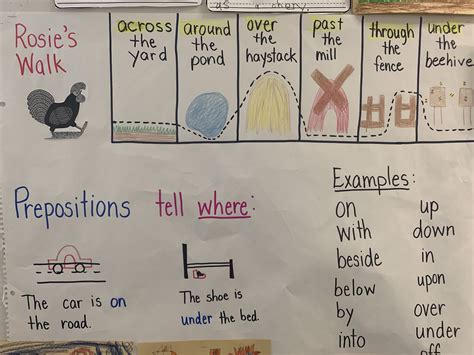 a cherry.
Rosie's
Walk
across
the
yard
around
the
pond
over
the
haystack
past
the
mill
through
the
fence
under
the
beehive
Prepositions tell where:
The car is on
the road.
The shoe is
under the bed.
Examples:
on up
with down
beside in
below upon
by over
into under
off